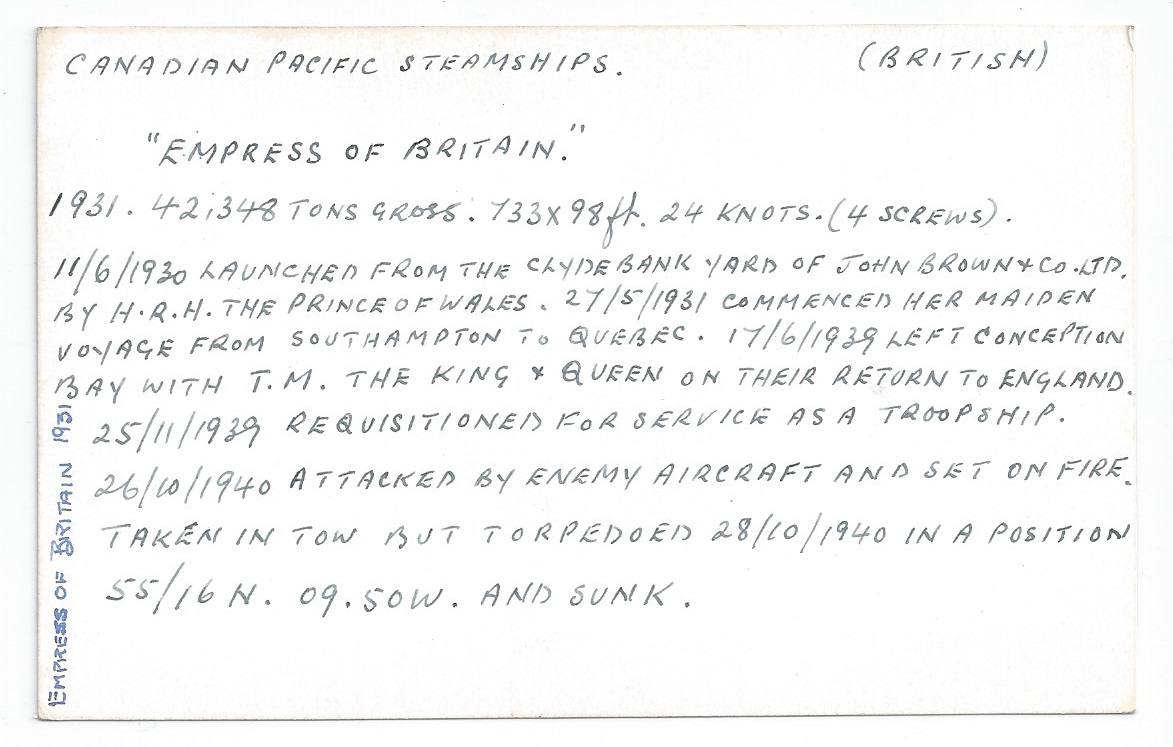 CANADIAN PACIFIC STEAMSHIPS. (BRITISH)
"EMPRESS OF BRITAIN."
1931. 42,348 TONS GROSS. 733 x 98ft. 24 KNOTS. (4 SCREWS).
11/6/1930 LAUNCHED FROM THE CLYDEBANK YARD OF JOHN BROWN & CO. LTD.
BY H.R.H. THE PRINCE OF WALES. 27/5/1931 COMMENCED HER MAIDEN
VOYAGE FROM SOUTHAMPTON TO QUEBEC. 17/6/1939 LEFT CONCEPTION
BAY WITH T.M. THE KING & QUEEN ON THEIR RETURN TO ENGLAND.
25/11/1939 REQUISITIONED FOR SERVICE AS A TROOPSHIP.
26/10/1940 ATTACKED BY ENEMY AIRCRAFT AND SET ON FIRE.
TAKEN IN TOW BUT TORPEDOED 28/10/1940 IN A POSITION
55/16 N. 09.50W. AND SUNK.
EMPRESS OF BRITAIN 1931